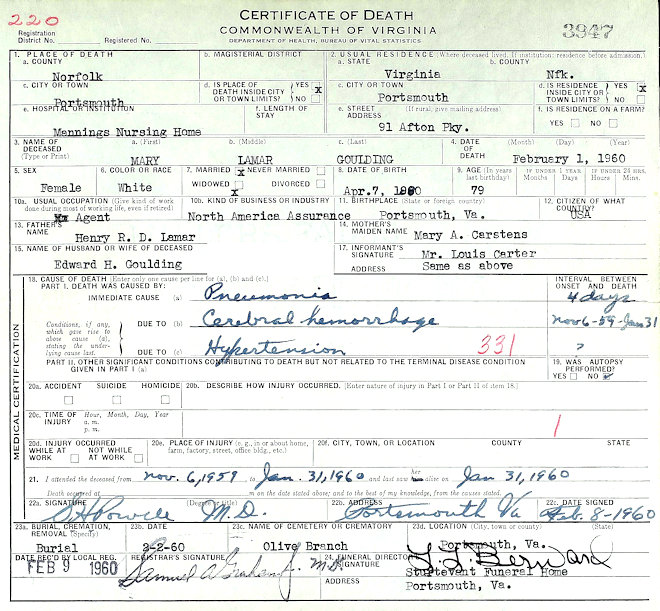 220
CERTIFICATE OF DEATH
COMMONWEALTH OF VIRGINIA
DEPARTMENT OF HEALTH, BUREAU OF VITAL STATISTICS
3947
Registration District No. Registered No.
1. PLACE OF DEATH
a. COUNTY
Norfolk
b. MAGISTERIAL DISTRICT
2. USUAL RESIDENCE (Where deceased lived. If institution: residence before admission.)
a. STATE
Virginia
b. COUNTY
Nfk.
c. CITY OR TOWN
Portsmouth
d. IS PLACE OF DEATH INSIDE CITY OR TOWN LIMITS? YES X NO
c. CITY OR TOWN
Portsmouth
d. IS RESIDENCE INSIDE CITY OR TOWN LIMITS? YES X NO
e. HOSPITAL OR INSTITUTION
Mannings Nursing Home
f. LENGTH OF STAY
e. STREET ADDRESS (If rural, give mailing address)
91 Afton Pky.
f. IS RESIDENCE ON A FARM?
YES NO
3. NAME OF DECEASED (Type or Print)
a. (First) b. (Middle) c. (Last)
MARY LAMAR GOULDING
4. DATE OF DEATH (Month) (Day) (Year)
February 1, 1960
5. SEX
Female
6. COLOR OR RACE
White
7. MARRIED NEVER MARRIED
WIDOWED X DIVORCED
8. DATE OF BIRTH
Apr.7, 1880
9. AGE (In years last birthday)
79
IF UNDER 1 YEAR Months Days
IF UNDER 24 HRS Hours Mins.
10a. USUAL OCCUPATION (Give kind of work done during most of working life, even if retired)
Agent
10b. KIND OF BUSINESS OR INDUSTRY
North America Assurance
11. BIRTHPLACE (State or foreign country)
Portsmouth, Va.
12. CITIZEN OF WHAT COUNTRY?
USA
13. FATHER'S NAME
Henry R. D. Lamar
14. MOTHER'S MAIDEN NAME
Mary A. Carstens
15. NAME OF HUSBAND OR WIFE OF DECEASED
Edward H. Goulding
17. INFORMANT'S SIGNATURE
Mr. Louis Carter
ADDRESS
Same as above
MEDICAL CERTIFICATION
18. CAUSE OF DEATH (Enter only one cause per line for (a), (b) and (c).)
INTERVAL BETWEEN ONSET AND DEATH
PART I. DEATH WAS CAUSED BY:
IMMEDIATE CAUSE (a) Pneumonia 4 days
Conditions, if any, which gave rise to above cause (a), stating the underlying cause last.
DUE TO (b) Cerebral hemorrhage Nov 6-59-Jan 31
DUE TO (c) Hypertension 331 ?
PART II. OTHER SIGNIFICANT CONDITIONS CONTRIBUTING TO DEATH BUT NOT RELATED TO THE TERMINAL DISEASE CONDITION GIVEN IN PART I (a)
19. WAS AUTOPSY PERFORMED?
YES NO
20a. ACCIDENT SUICIDE HOMICIDE
20b. DESCRIBE HOW INJURY OCCURRED. (Enter nature of injury in Part I or Part II of item 18.)
20c. TIME OF INJURY Hour, Month, Day, Year
a. m.
p. m.
1
20d. INJURY OCCURRED
WHILE AT WORK NOT WHILE AT WORK
20e. PLACE OF INJURY (e.g., in or about home, farm, factory, street, office bldg., etc.)
20f. CITY, TOWN, OR LOCATION COUNTY STATE
21. I attended the deceased from Nov. 6, 1959 to Jan. 31, 1960 and last saw her alive on Jan 31, 1960
Death occurred at m on the date stated above; and to the best of my knowledge, from the causes stated.
22a. SIGNATURE (Degree or title)
Powell M.D.
22b. ADDRESS
Portsmouth Va
22c. DATE SIGNED
Feb. 8-1960
23a. BURIAL, CREMATION, REMOVAL (Specify)
Burial
23b. DATE
2-2-60
23c. NAME OF CEMETERY OR CREMATORY
Olive Branch
23d. LOCATION (City, town or county) (State)
Portsmouth, Va.
DATE REC'D BY LOCAL REG.
FEB 9 1960
REGISTRAR'S SIGNATURE
Samuel A Graham Jr. M.D.
24. FUNERAL DIRECTOR
SIGNATURE
ADDRESS
Sturtevant Funeral Home
Portsmouth, Va.